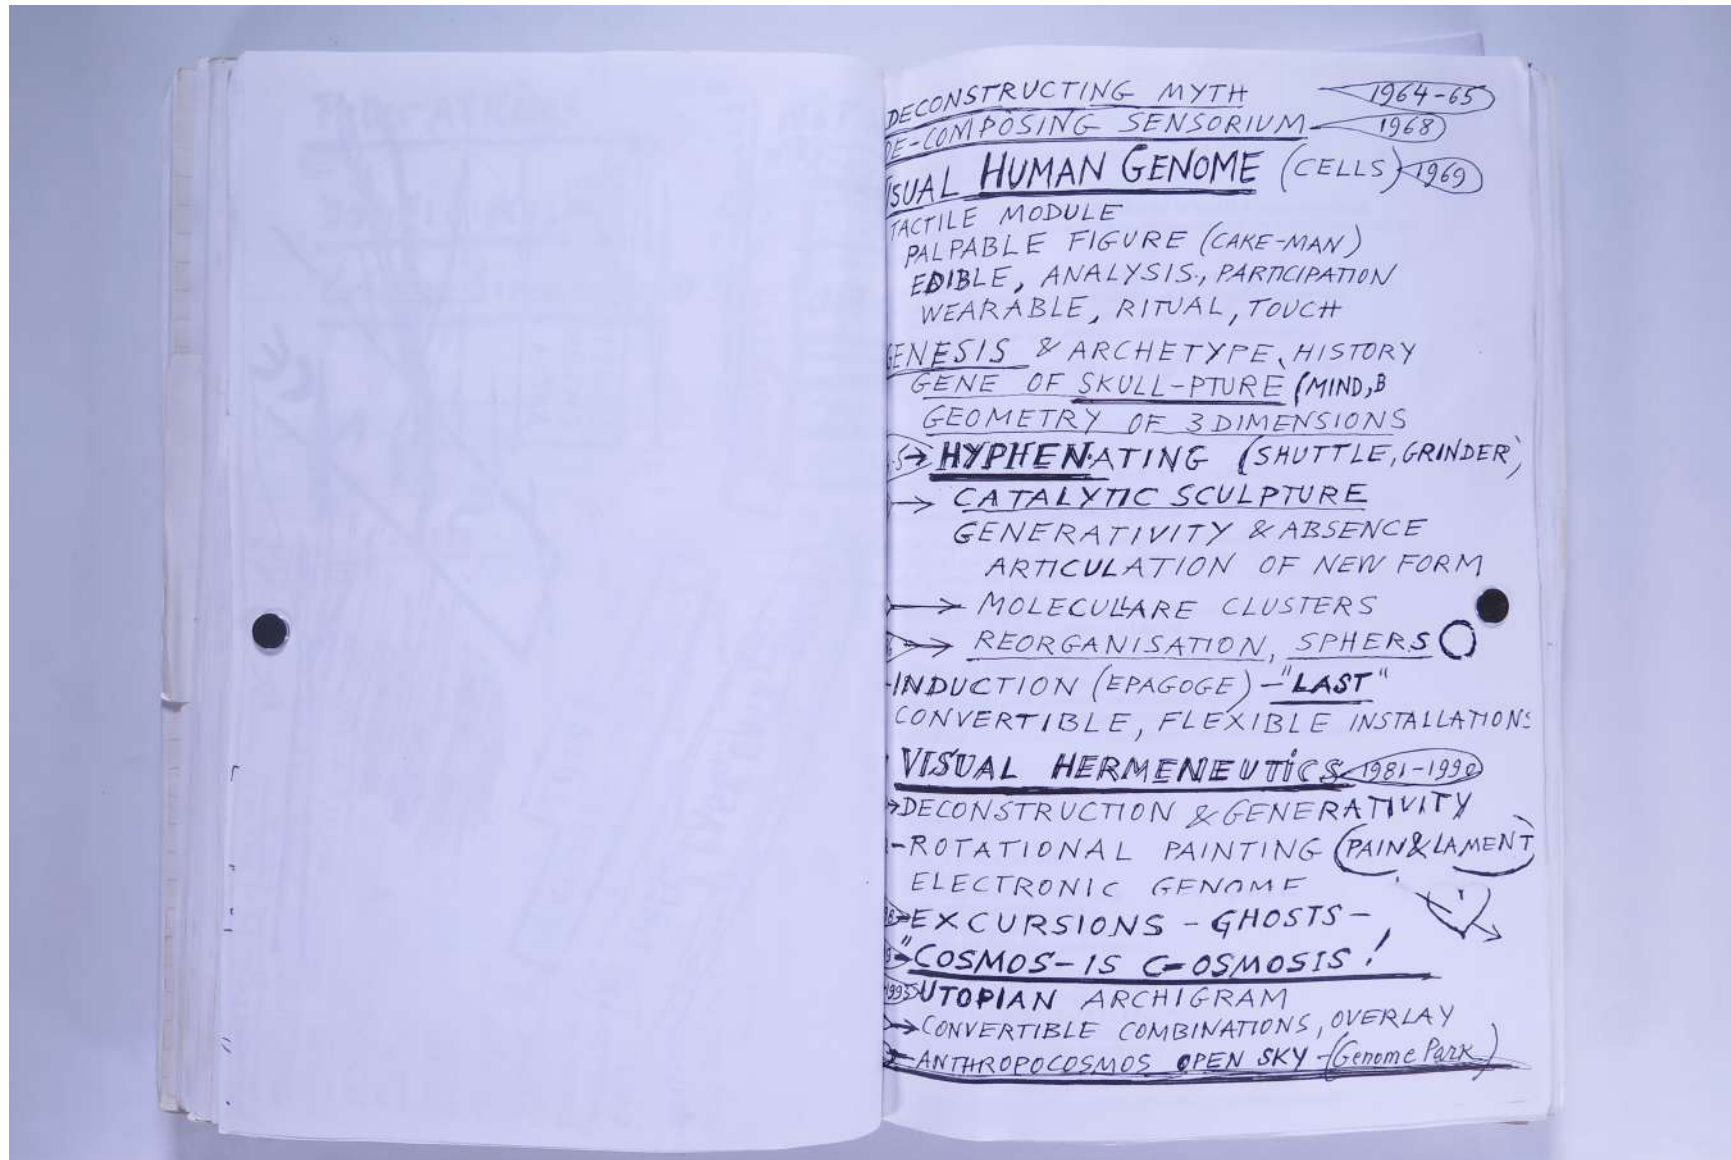 DECONSTRUCTING MYTH 1964-65
DE-COMPOSING SENSORIUM 1968
ISUAL HUMAN GENOME (CELLS) 1969
TACTILE MODULE
PALPABLE FIGURE (CAKE-MAN)
EDIBLE, ANALYSIS, PARTICIPATION
WEARABLE, RITUAL, TOUCH
ENESIS & ARCHETYPE, HISTORY
GENE OF SKULL-PTURE (MIND, B
GEOMETRY OF 3 DIMENSIONS
→ HYPHEN·ATING (SHUTTLE, GRINDER)
→ CATALYTIC SCULPTURE
GENERATIVITY & ABSENCE
ARTICULATION OF NEW FORM
→ MOLECULLARE CLUSTERS
→ REORGANISATION, SPHERS
-INDUCTION (EPAGOGE) - "LAST"
CONVERTIBLE, FLEXIBLE INSTALLATIONS
VISUAL HERMENEUTICS 1981-1990
→ DECONSTRUCTION & GENERATIVITY
-ROTATIONAL PAINTING (PAIN & LAMENT)
ELECTRONIC GENOME
EXCURSIONS - GHOSTS -
"COSMOS - IS C-OSMOSIS!
1995 UTOPIAN ARCHIGRAM
→ CONVERTIBLE COMBINATIONS, OVERLAY
ANTHROPOCOSMOS OPEN SKY - (Genome Park)